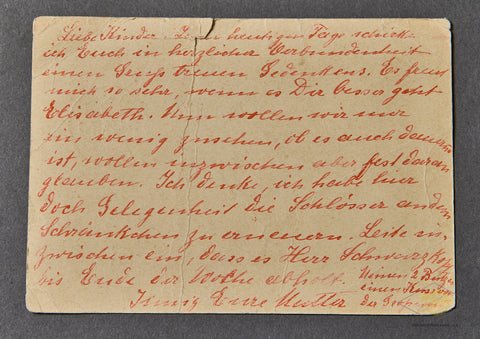 Liebe Kinder. Zum heutigen Tage schicke
ich Euch in herzlicher Verbundenheit
einen Gruß treuen Gedenkens. Es freut
mich so sehr, wenn es Dir besser geht
Elisabeth. Nun wollen wir nur
ein wenig zusehen, ob es auch dauernd
ist, wollen inzwischen aber fest daran
glauben. Ich denke, ich habe hier
doch Gelegenheit die Schlösser an den
Schränkchen zu erneuern. Leite in-
zwischen ein, dass es Herr
bis Ende der Woche abholt.
Innig Eure Mutter
2
einen Kuss von
der